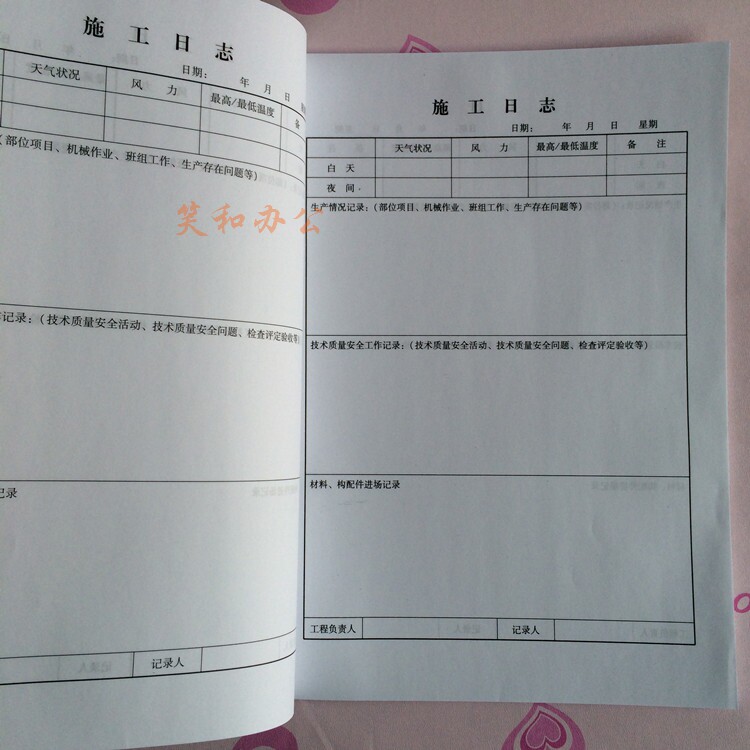 施工日志
日期： 年 月 日 星
天气状况 风 力 最高/最低温度 备
(部位项目、机械作业、班组工作、生产存在问题等)
笑和办公
记录：(技术质量安全活动、技术质量安全问题、检查评定验收等)
记录
记录人
施工日志
日期： 年 月 日 星期
天气状况 风 力 最高/最低温度 备 注
白 天
夜 间
生产情况记录：(部位项目、机械作业、班组工作、生产存在问题等)
技术质量安全工作记录：(技术质量安全活动、技术质量安全问题、检查评定验收等)
材料、构配件进场记录
工程负责人 记录人